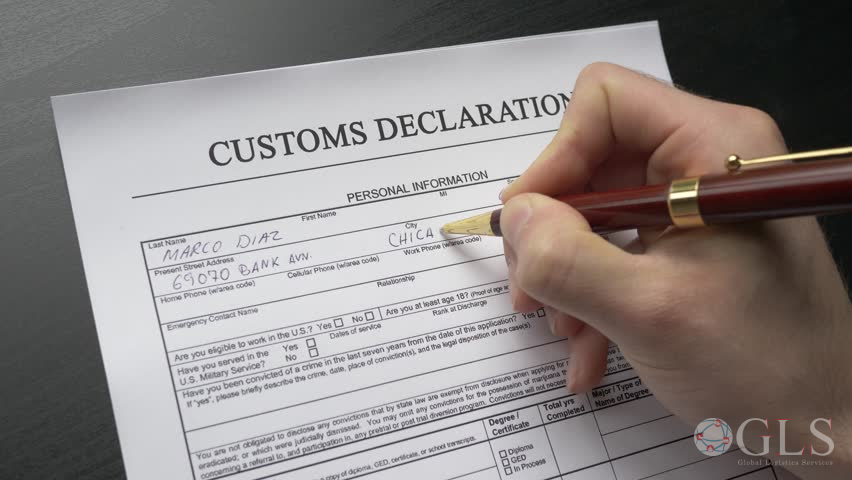 CUSTOMS DECLARATION
PERSONAL INFORMATION
Last Name First Name MI
MARCO DIAZ
Present Street Address City
69070 BANK AVN. CHICA
Home Phone (w/area code) Cellular Phone (w/area code) Work Phone (w/area code)
Emergency Contact Name Relationship
Are you eligible to work in the U.S.? Yes No Are you at least age 18? (Proof of age
Have you served in the Yes Dates of service Rank at Discharge Yes
U.S. Military Service? No
Have you been convicted of a crime in the last seven years from the date of this application?
If "yes", please briefly describe the crime, date, place of conviction(s), and the legal disposition of the case(s).
You are not obligated to disclose any convictions that by state law are exempt from disclosure when applying for
eradicated; or which were judicially dismissed. You may omit any convictions for the possession of marijuana
concerning a referral to, and participation in, any pretrial or post trial diversion program. Convictions will not neces
copy of diploma, GED, certificate, or school transcripts. Degree / Certificate Total yrs Completed Major / Type of Name of Degree
Diploma
GED
In Process
GLS
Global Logistics Services